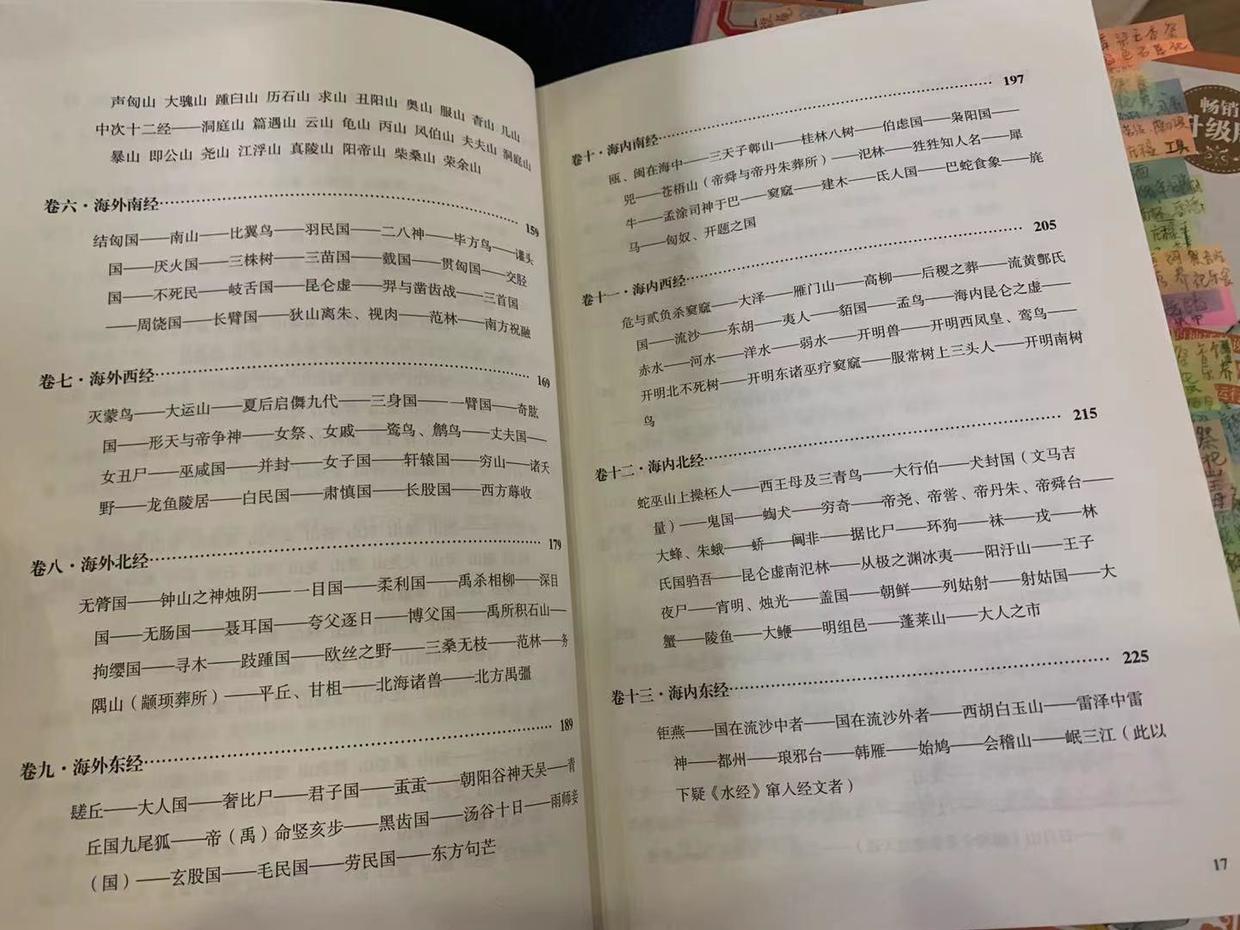 声匈山 大騩山 踵臼山 历石山 求山 丑阳山 奥山 服山 杳山 几山
中次十二经——洞庭山 篇遇山 云山 龟山 丙山 风伯山 夫夫山 洞庭山
暴山 即公山 尧山 江浮山 真陵山 阳帝山 柴桑山 荣余山
卷六·海外南经 159
结匈国——南山——比翼鸟——羽民国——二八神——毕方鸟——讙头
国——厌火国——三株树——三苗国——臷国——贯匈国——交胫
国——不死民——岐舌国——昆仑虚——羿与凿齿战——三首国
——周饶国——长臂国——狄山离朱、视肉——范林——南方祝融
卷七·海外西经 169
灭蒙鸟——大运山——夏后启儛九代——三身国——一臂国——奇肱
国——形天与帝争神——女祭、女戚——鸾鸟、鶬鸟——丈夫国—
女丑尸——巫咸国——并封——女子国——轩辕国——穷山——诸夭
野——龙鱼陵居——白民国——肃慎国——长股国——西方蓐收
卷八·海外北经 179
无䏿国——钟山之神烛阴——一目国——柔利国——禹杀相柳——深目
国——无肠国——聂耳国——夸父逐日——博父国——禹所积石山——
拘缨国——寻木——跂踵国——欧丝之野——三桑无枝——范林—务
隅山（颛顼葬所）——平丘、甘柤——北海诸兽——北方禺彊
卷九·海外东经 189
𨲠丘——大人国——奢比尸——君子国——䖝䖝——朝阳谷神天吴—青
丘国九尾狐——帝（禹）命竖亥步——黑齿国——汤谷十日—雨师妾
（国）——玄股国——毛民国——劳民国——东方句芒
卷十·海内南经 197
瓯、闽在海中——三天子鄣山——桂林八树——伯虑国——枭阳国——
兕——苍梧山（帝舜与帝丹朱葬所）——氾林——狌狌知人名——犀
牛——孟涂司神于巴——窫窳——建木——氐人国——巴蛇食象——旄
马——匈奴、开题之国
卷十一·海内西经 205
危与贰负杀窫窳——大泽——雁门山——高柳——后稷之葬——流黄酆氏
国——流沙——东胡——夷人——貊国——孟鸟——海内昆仑之虚——
赤水——河水——洋水——弱水——开明兽——开明西凤皇、鸾鸟——
开明北不死树——开明东诸巫疗窫窳——服常树上三头人——开明南树
鸟
卷十二·海内北经 215
蛇巫山上操柸人——西王母及三青鸟——大行伯——犬封国（文马吉
量）——鬼国——蜪犬——穷奇——帝尧、帝喾、帝丹朱、帝舜台——
大蜂、朱蛾——蟜——阘非——据比尸——环狗——袜——戎——林
氏国驺吾——昆仑虚南氾林——从极之渊冰夷——阳汙山——王子
夜尸——宵明、烛光——盖国——朝鲜——列姑射——射姑国——大
蟹——陵鱼——大鯾——明组邑——蓬莱山——大人之市
卷十三·海内东经 225
钜燕——国在流沙中者——国在流沙外者——西胡白玉山——雷泽中雷
神——都州——琅邪台——韩雁——始鸠——会稽山——岷三江（此以
下疑《水经》窜入经文者）
17
畅销
升级版
工具